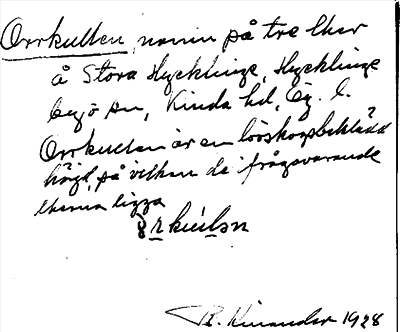 Orrkullen, namn på tre lher
å Stora Hycklinge, Hycklinge
by, Kinda hd, Ög. l.
Orrkullen är en lövskogsbeklädd
höjd, på vilken de ifrågavarande
lherna ligga
R. Kinander 1928